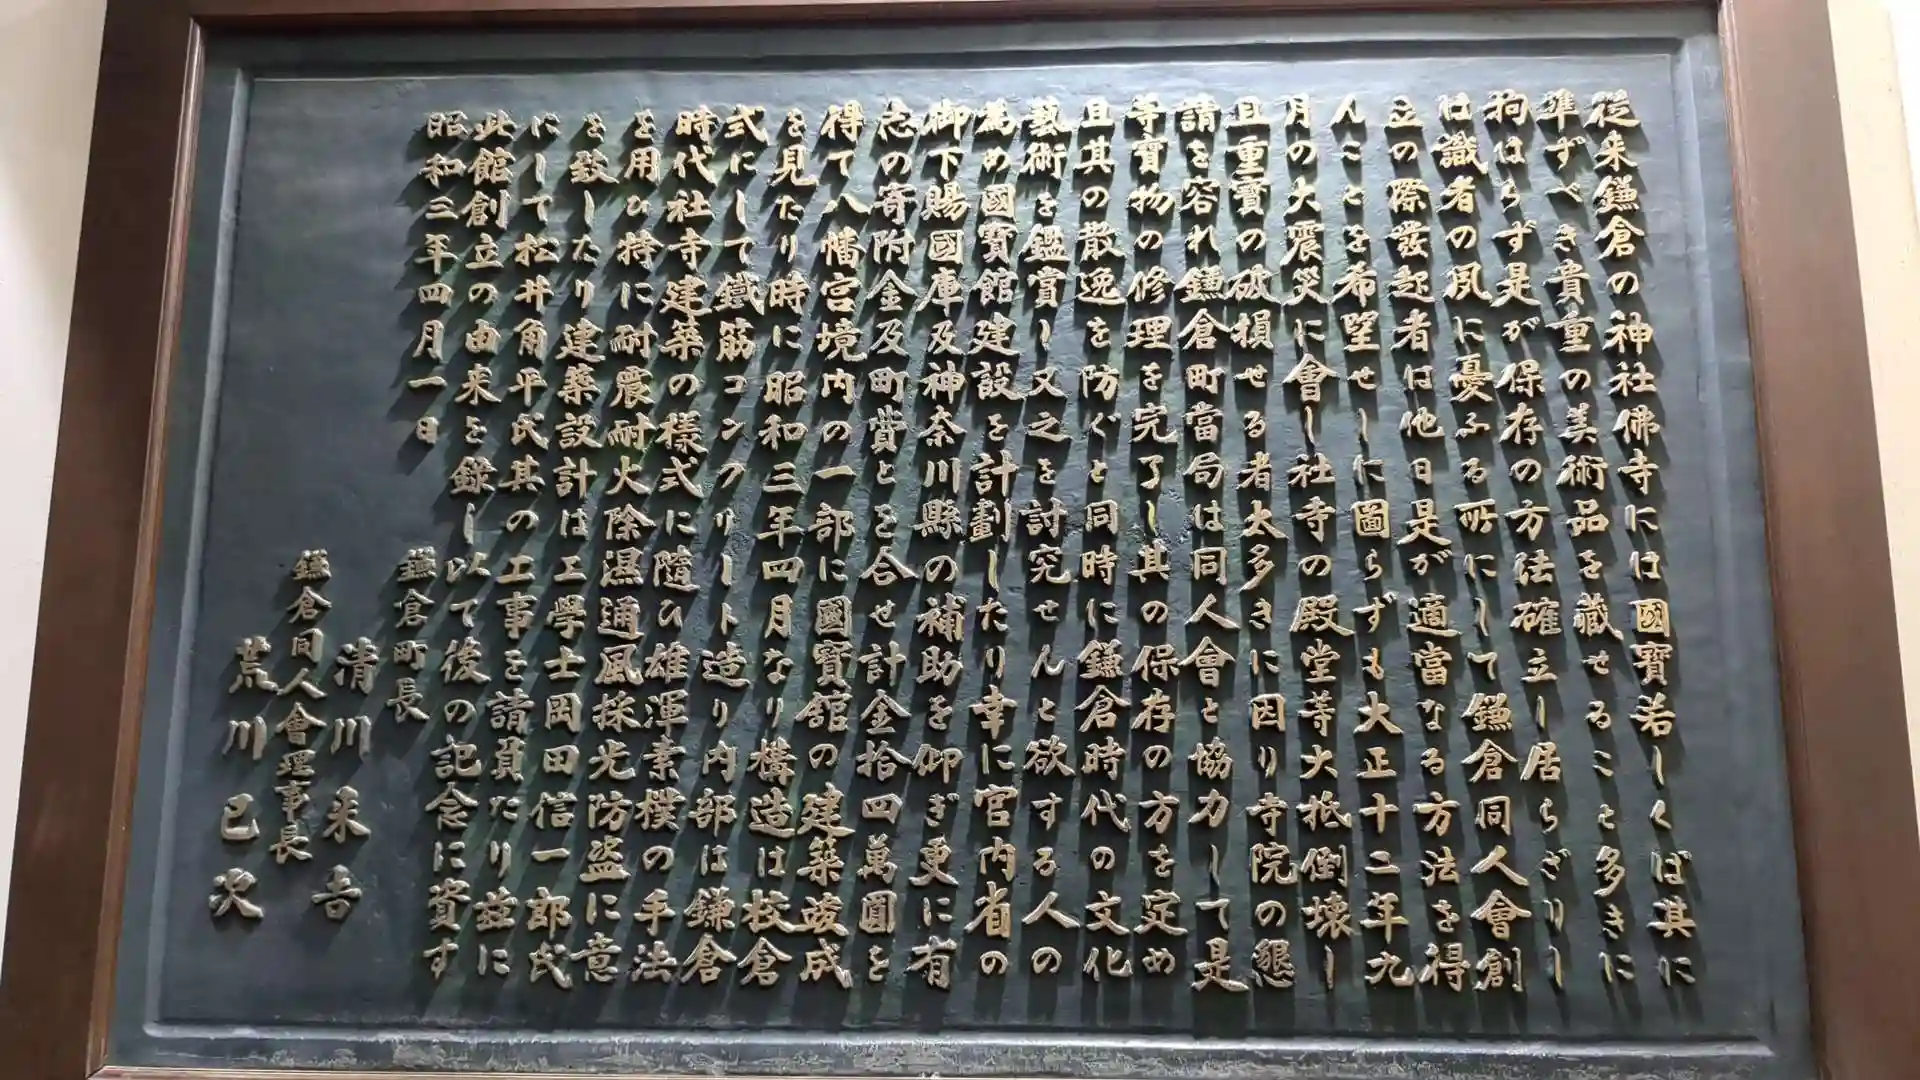 従来鎌倉の神社佛寺には國寶若しくば其に
準ずべき貴重の美術品を藏せること多きに
拘はらず是が保存の方法確立し居らざりし
は識者の夙に憂ふる所にして鎌倉同人會創
立の際發起者は他日是が適當なる方法を得
んことを希望せしに圖らずも大正十二年九
月の大震災に會し社寺の殿堂等大抵倒壊し
且重寶の破損せる者太多きに因り寺院の懇
請を容れ鎌倉町當局は同人會と協力して是
等寳物の修理を完了し其の保存の方を定め
且其の散逸を防ぐと同時に鎌倉時代の文化
藝術を鑑賞し又之を討究せんと欲する人の
為め國寳館建設を計劃したり幸に宮内省の
御下賜國庫及神奈川縣の補助を仰ぎ更に有
志の寄附金及町費とを合せ計金拾四萬圓を
得て八幡宮境内の一部に國寳舘の建築竣成
を見たり時に昭和三年四月なり構造は校倉
式にして鐵筋コンクリート造り内部は鎌倉
時代社寺建築の様式に隨ひ雄渾素樸の手法
を用ひ特に耐震耐火除濕通風採光防盗に意
を致したり建築設計は工學士岡田信一郎氏
にして松井角平氏其の工事を請負たり茲に
此館創立の由来を録し以て後の記念に資す
昭和三年四月一日
鎌倉町長
清川来吉
鎌倉同人會理事長
荒川已次